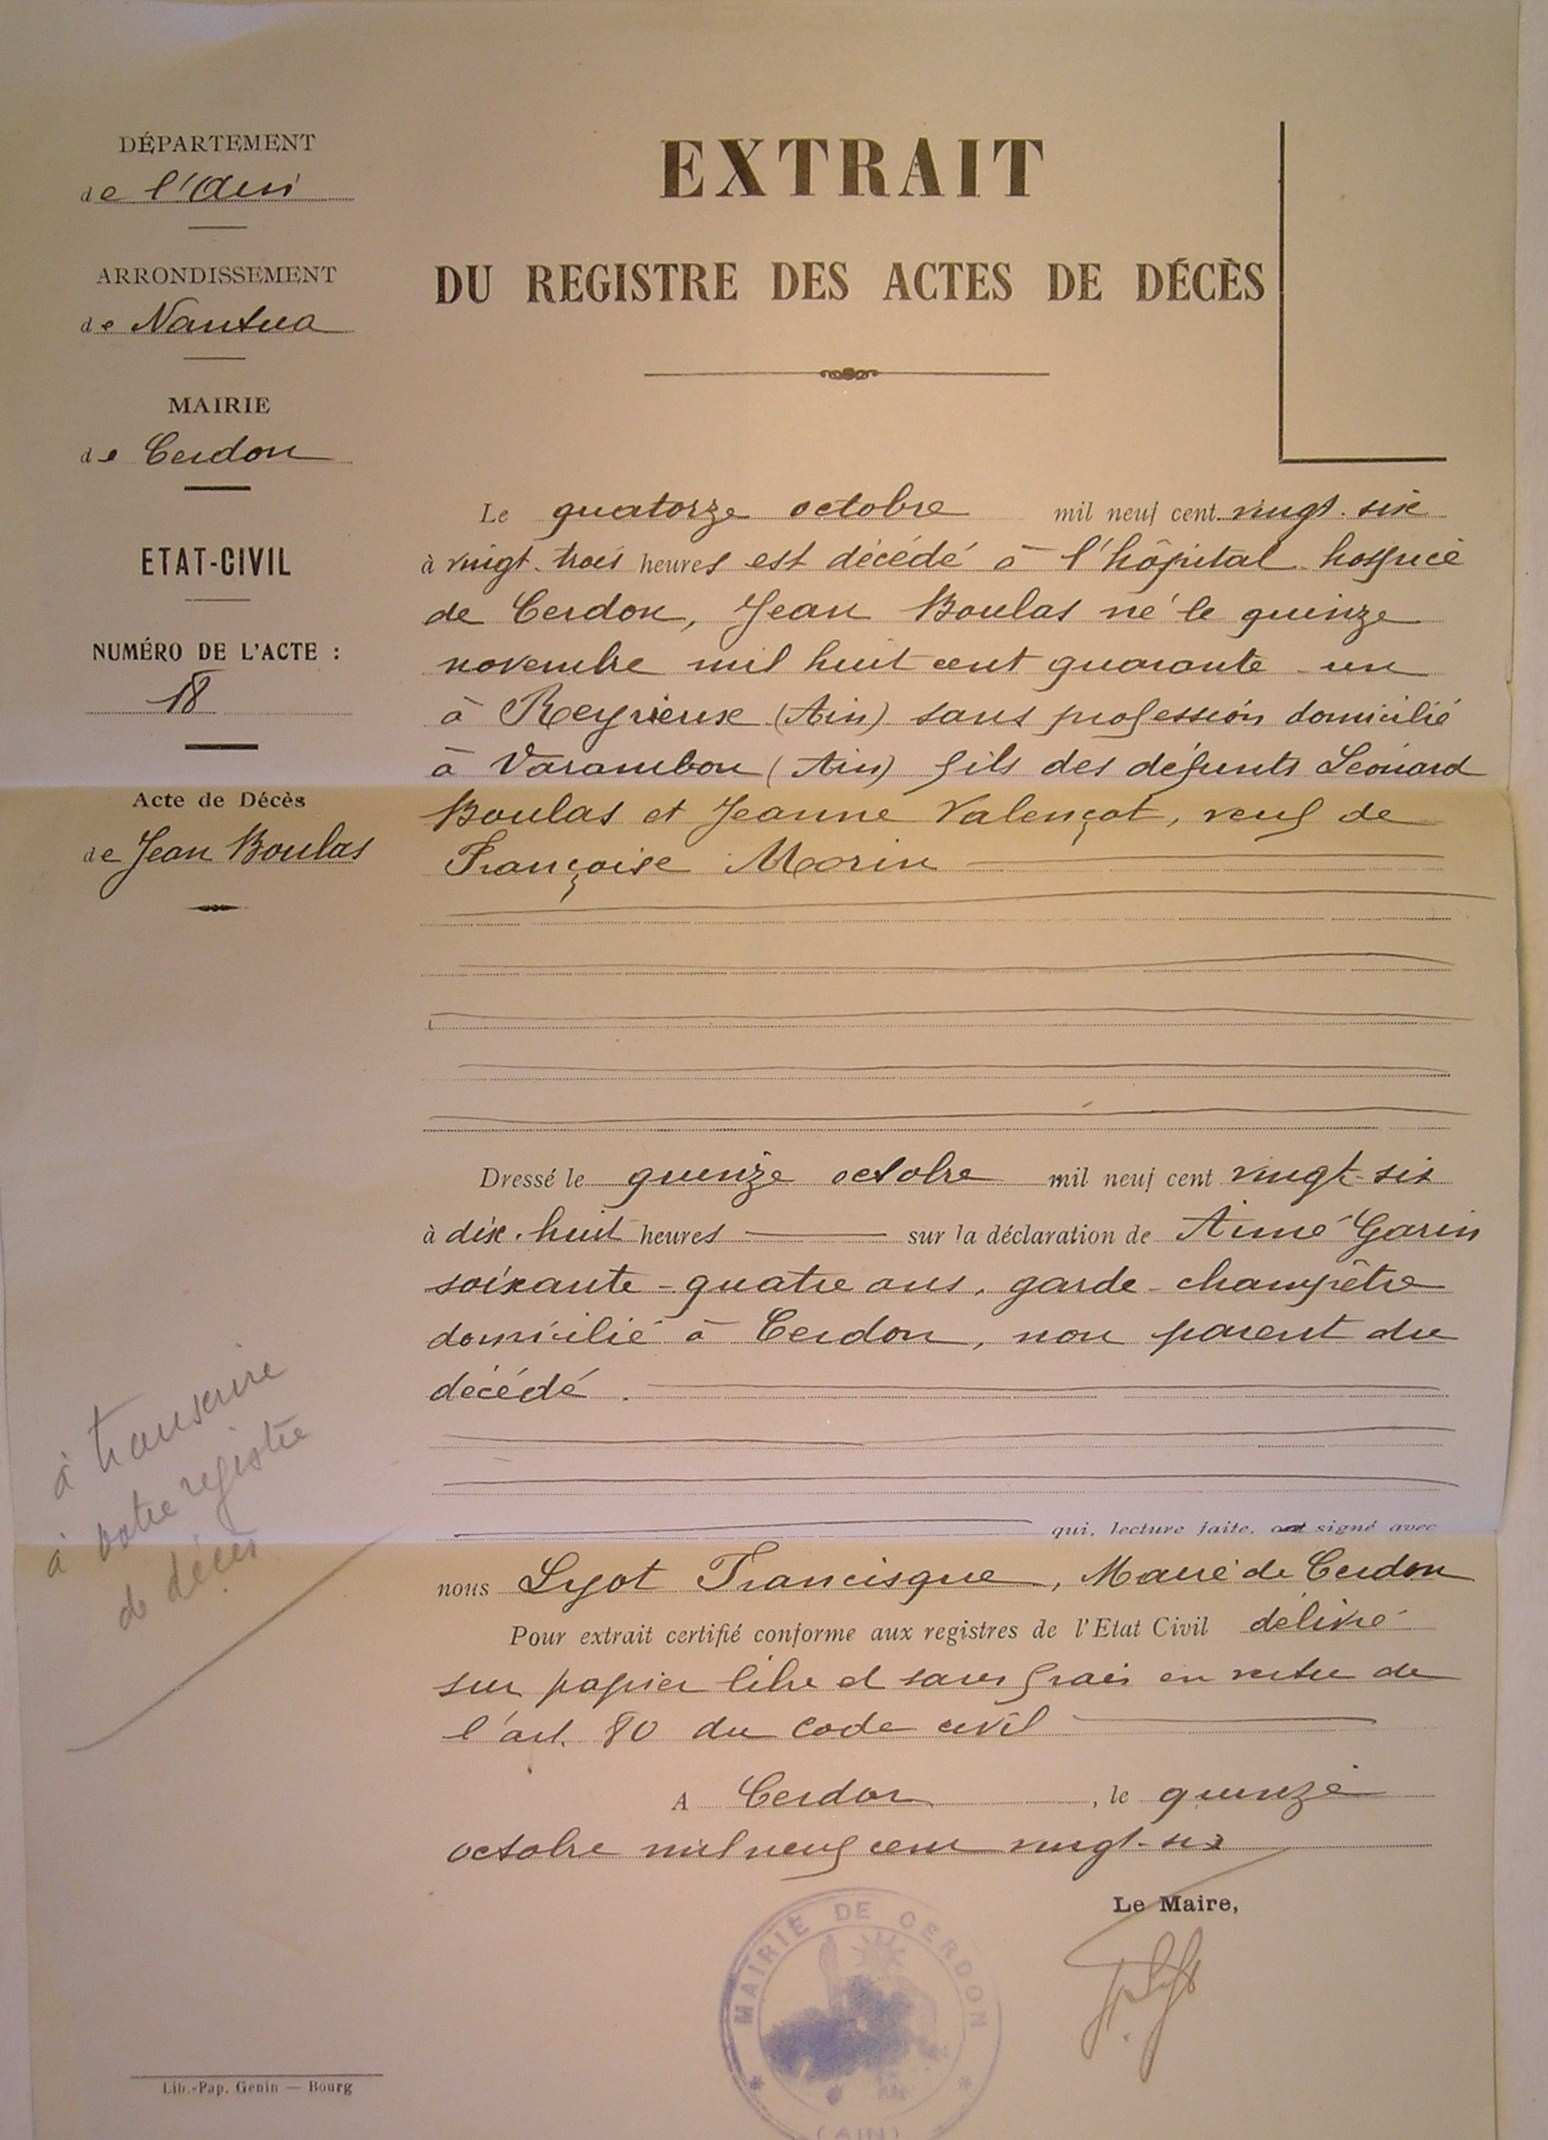 DÉPARTEMENT
de l'Ain
ARRONDISSEMENT
de Nantua
MAIRIE
de Cerdon
ETAT-CIVIL
NUMÉRO DE L'ACTE :
18
Acte de Décès
de Jean Boulas
à transcrire
à votre registre
de décès
EXTRAIT
DU REGISTRE DES ACTES DE DÉCÈS
Le quatorze octobre mil neuf cent vingt-six
à vingt-trois heures est décédé à l'hôpital-hospice
de Cerdon, Jean Boulas né le quinze
novembre mil huit cent quarante-un
à Reyrieux (Ain) sans profession domicilié
à Varambon (Ain) fils des défunts Léonard
Boulas et Jeanne Valençot, veuf de
Françoise Morin
Dressé le quinze octobre mil neuf cent vingt-six
à dix-huit heures sur la déclaration de Aimé Garin
soixante-quatre ans, garde-champêtre
domicilié à Cerdon, non parent du
décédé.
qui, lecture faite, a signé avec
nous Lyot Francisque, Maire de Cerdon
Pour extrait certifié conforme aux registres de l'Etat Civil délivré
sur papier libre et sans frais en vertu de
l'art. 80 du code civil
A Cerdon, le quinze
octobre mil neuf cent vingt-six
Le Maire,
MAIRIE DE CERDON
(AIN)
Lib.-Pap. Genin — Bourg